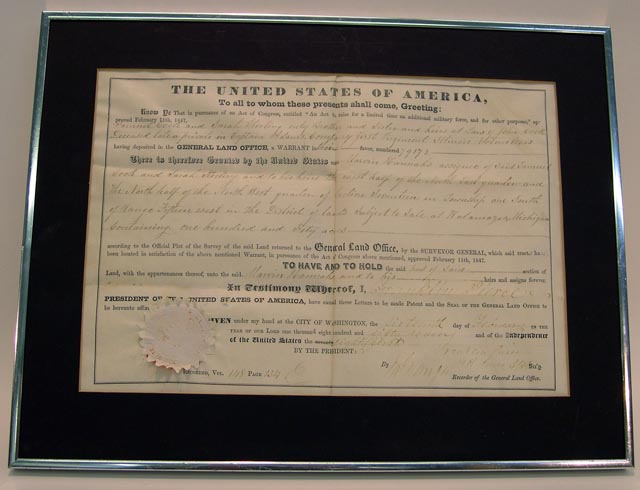 THE UNITED STATES OF AMERICA,
To all to whom these presents shall come, Greeting:
Know Ye That in pursuance of an Act of Congress, entitled "An Act to raise for a limited time an additional military force, and for other purposes," ap-
proved February 11th, 1847,
Samuel Cook and Sarah only Brother and Sister and heirs at Law of John Cook
Deceased late a private in Captain Company First Regiment Illinois Volunteers
having deposited in the GENERAL LAND OFFICE, a WARRANT in favor, numbered
There is therefore Granted by the United States unto Marvin Hannahs assignee of said Samuel
Cook and Sarah and to his heirs the West half of the North East quarter and
the North half of the North West quarter of Section in Township one South
of Range Fifteen West in the District of Lands Subject to Sale at Kalamazoo Michigan
Containing one hundred and Sixty acres
according to the Official Plat of the Survey of the said Land returned to the General Land Office, by the SURVEYOR GENERAL, which said tract has
been located in satisfaction of the above mentioned Warrant, in pursuance of the Act of Congress above mentioned, approved February 11th, 1847.
TO HAVE AND TO HOLD the said of Said section of
Land, with the appurtenances thereof, unto the said Marvin Hannahs and to his heirs and assigns forever.
In Testimony Whereof, I, Franklin Pierce
PRESIDENT OF THE UNITED STATES OF AMERICA, have caused these Letters to be made Patent and the SEAL OF THE GENERAL LAND OFFICE to
be hereunto affixed
GIVEN under my hand at the CITY OF WASHINGTON, the day of in the
YEAR OF OUR LORD one thousand eight hundred and and of the Independence
of the United States the
BY THE PRESIDENT: Franklin Pierce
By Sec'y
RECORDED, VOL. 148 PAGE 334 Recorder of the General Land Office.